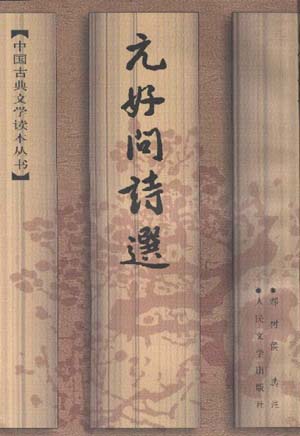 【中国古典文学读本丛书】
元好问詩選
●郝树侯 选注
●人民文学出版社